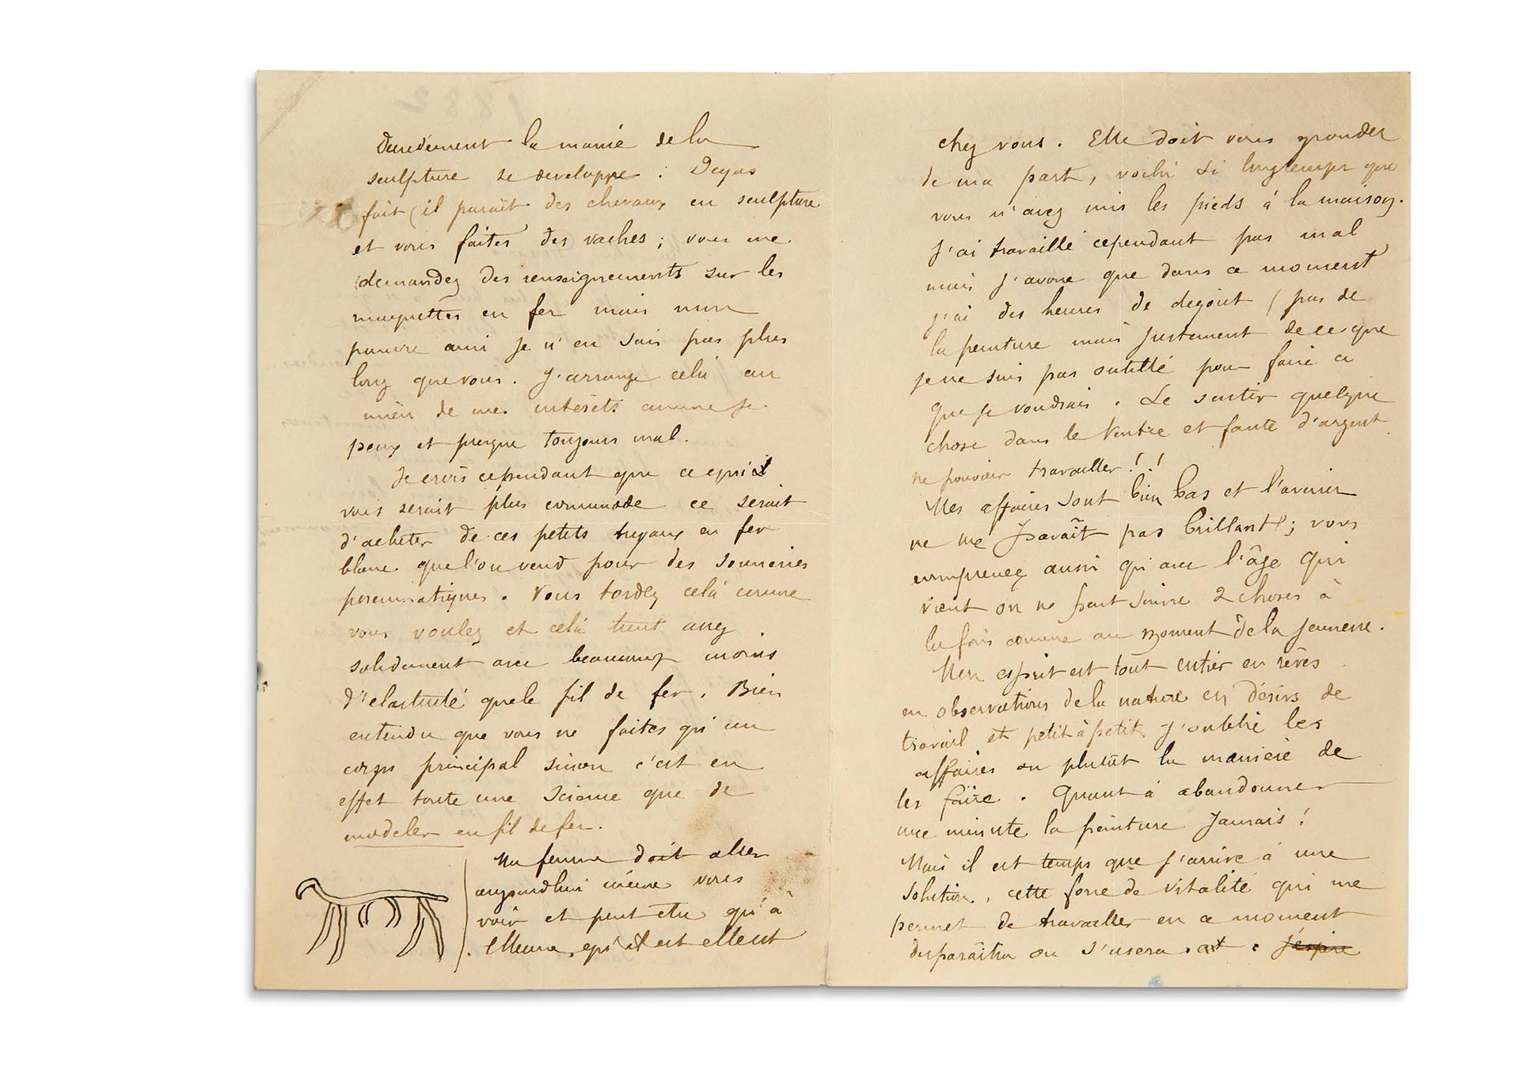 Durement la manie de la
sculpture se développe : Degas
fait (il parait des chevaux en sculpture
et vous faites des vaches ; vous me
demandez des renseignements sur les
maquettes en fer mais mon
pauvre ami je n'en sais pas plus
long que vous. J'arrange celà au
mieu de mes intérêts comme je
peux et presque toujours mal.
Je crois cependant que ce qui
vous serait plus commode ce serait
d'acheter de ces petits tuyaux en fer
blanc que l'on vend pour des sonneries
pneumatiques. Vous tordez celà comme
vous voulez et celà tient assez
solidement avec beaucoup moins
d'elasticité que le fil de fer. Bien
entendu que vous ne faites qu'un
corps principal sinon c'est en
effet toute une science que de
modeler en fil de fer.
Ma femme doit aller
aujourdhui même vous
voir et peut etre qu'à
l'heure qu'il est elle est
chez vous. Elle doit vous gronder
de ma part, voilà si longtemps que
vous n'avez mis les pieds à la maison.
J'ai travaillé cependant pas mal
mais j'avoue que dans ce moment
j'ai des heures de degout (pas de
la peinture mais justement de ce que
je ne suis pas outillé pour faire ce
que je voudrais. Se sentir quelque
chose dans le ventre et faute d'argent
ne pouvoir travailler !!
Mes affaires sont bien bas et l'avenir
ne me paraît pas brillant ; vous
comprenez aussi qu'avec l'âge qui
vient on ne peut suivre 2 choses à
la fois comme au moment de la jeunesse.
Mon esprit est tout entier en rêves
en observations de la nature en désirs de
travail et petit à petit j'oublie les
affaires ou plutôt la manière de
les faire. Quant à abandonner
une minute la peinture jamais !
Mais il est temps que j'arrive à une
solution, cette force de vitalité qui me
permet de travailler en ce moment
disparaîtra ou s'usera et j'espère